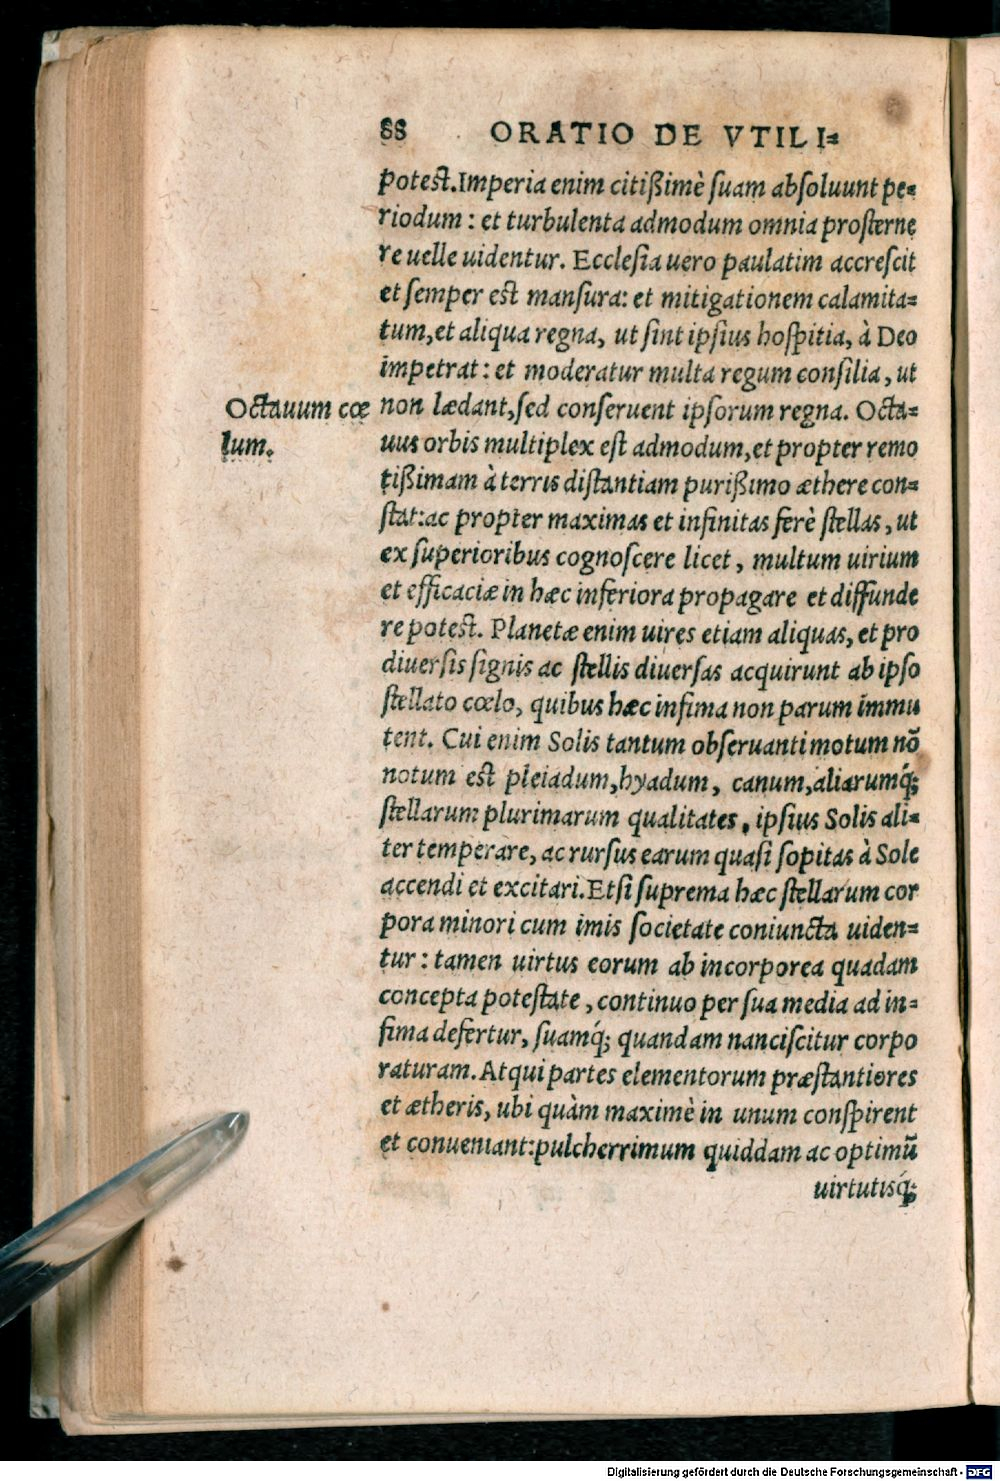 88 ORATIO DE VTILI⸗
potest.Imperia enim citißimè ſuam abſoluunt pe⸗
riodum : et turbulenta admodum omnia proſterne
re uelle uidentur. Eccleſia uero paulatim accreſcit
et ſemper est manſura: et mitigationem calamita⸗
tum,et aliqua regna, ut ſint ipſius hoſpitia, à Deo
impetrat : et moderatur multa regum conſilia, ut
Octauum cœ
lum.
non lædant,ſed conſeruent ipſorum regna. Octa⸗
uus orbis multiplex eſt admodum,et propter remo
tißimam à terris diſtantiam purißimo æthere con⸗
ſtat:ac propter maximas et infinitas ferè ſtellas, ut
ex ſuperioribus cognoſcere licet, multum uirium
et efficaciæ in hæc inferiora propagare et diffunde
re potest. Planetæ enim uires etiam aliquas, et pro
diuerſis ſignis ac ſtellis diuerſas acquirunt ab ipſo
ſtellato cœlo, quibus hæc infima non parum immu
tent. Cui enim Solis tantum obſeruanti motum nō
notum est pleiadum,hyadum, canum,aliarumq́;
ſtellarum plurimarum qualitates, ipſius Solis ali⸗
ter temperare, ac rurſus earum quaſi ſopitas à Sole
accendi et excitari.Etſi ſuprema hæc ſtellarum cor
pora minori cum imis ſocietate coniuncta uiden⸗
tur : tamen uirtus eorum ab incorporea quadam
concepta poteſtate, continuo per ſua media ad in⸗
fima defertur, ſuamq́; quandam nanciſcitur corpo
raturam.Atqui partes elementorum præſtantiores
et ætheris, ubi quàm maximè in unum conſpirent
et conueniant:pulcherrimum quiddam ac optimū
uirtutisq́;